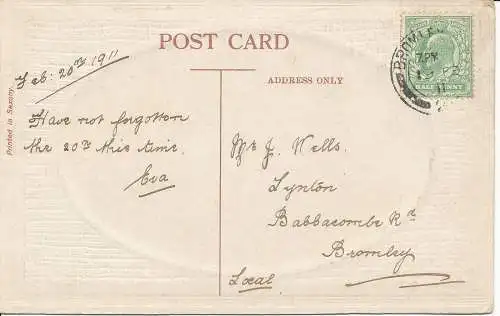 POST CARD
ADDRESS ONLY
Printed in Saxony.
Feb: 20th 1911
Have not forgotten
the 20th this time.
Eva
Mr J. Wells.
Lynton
Babbacombe Rd
Bromley
Local
BROMLEY
HALFPENNY